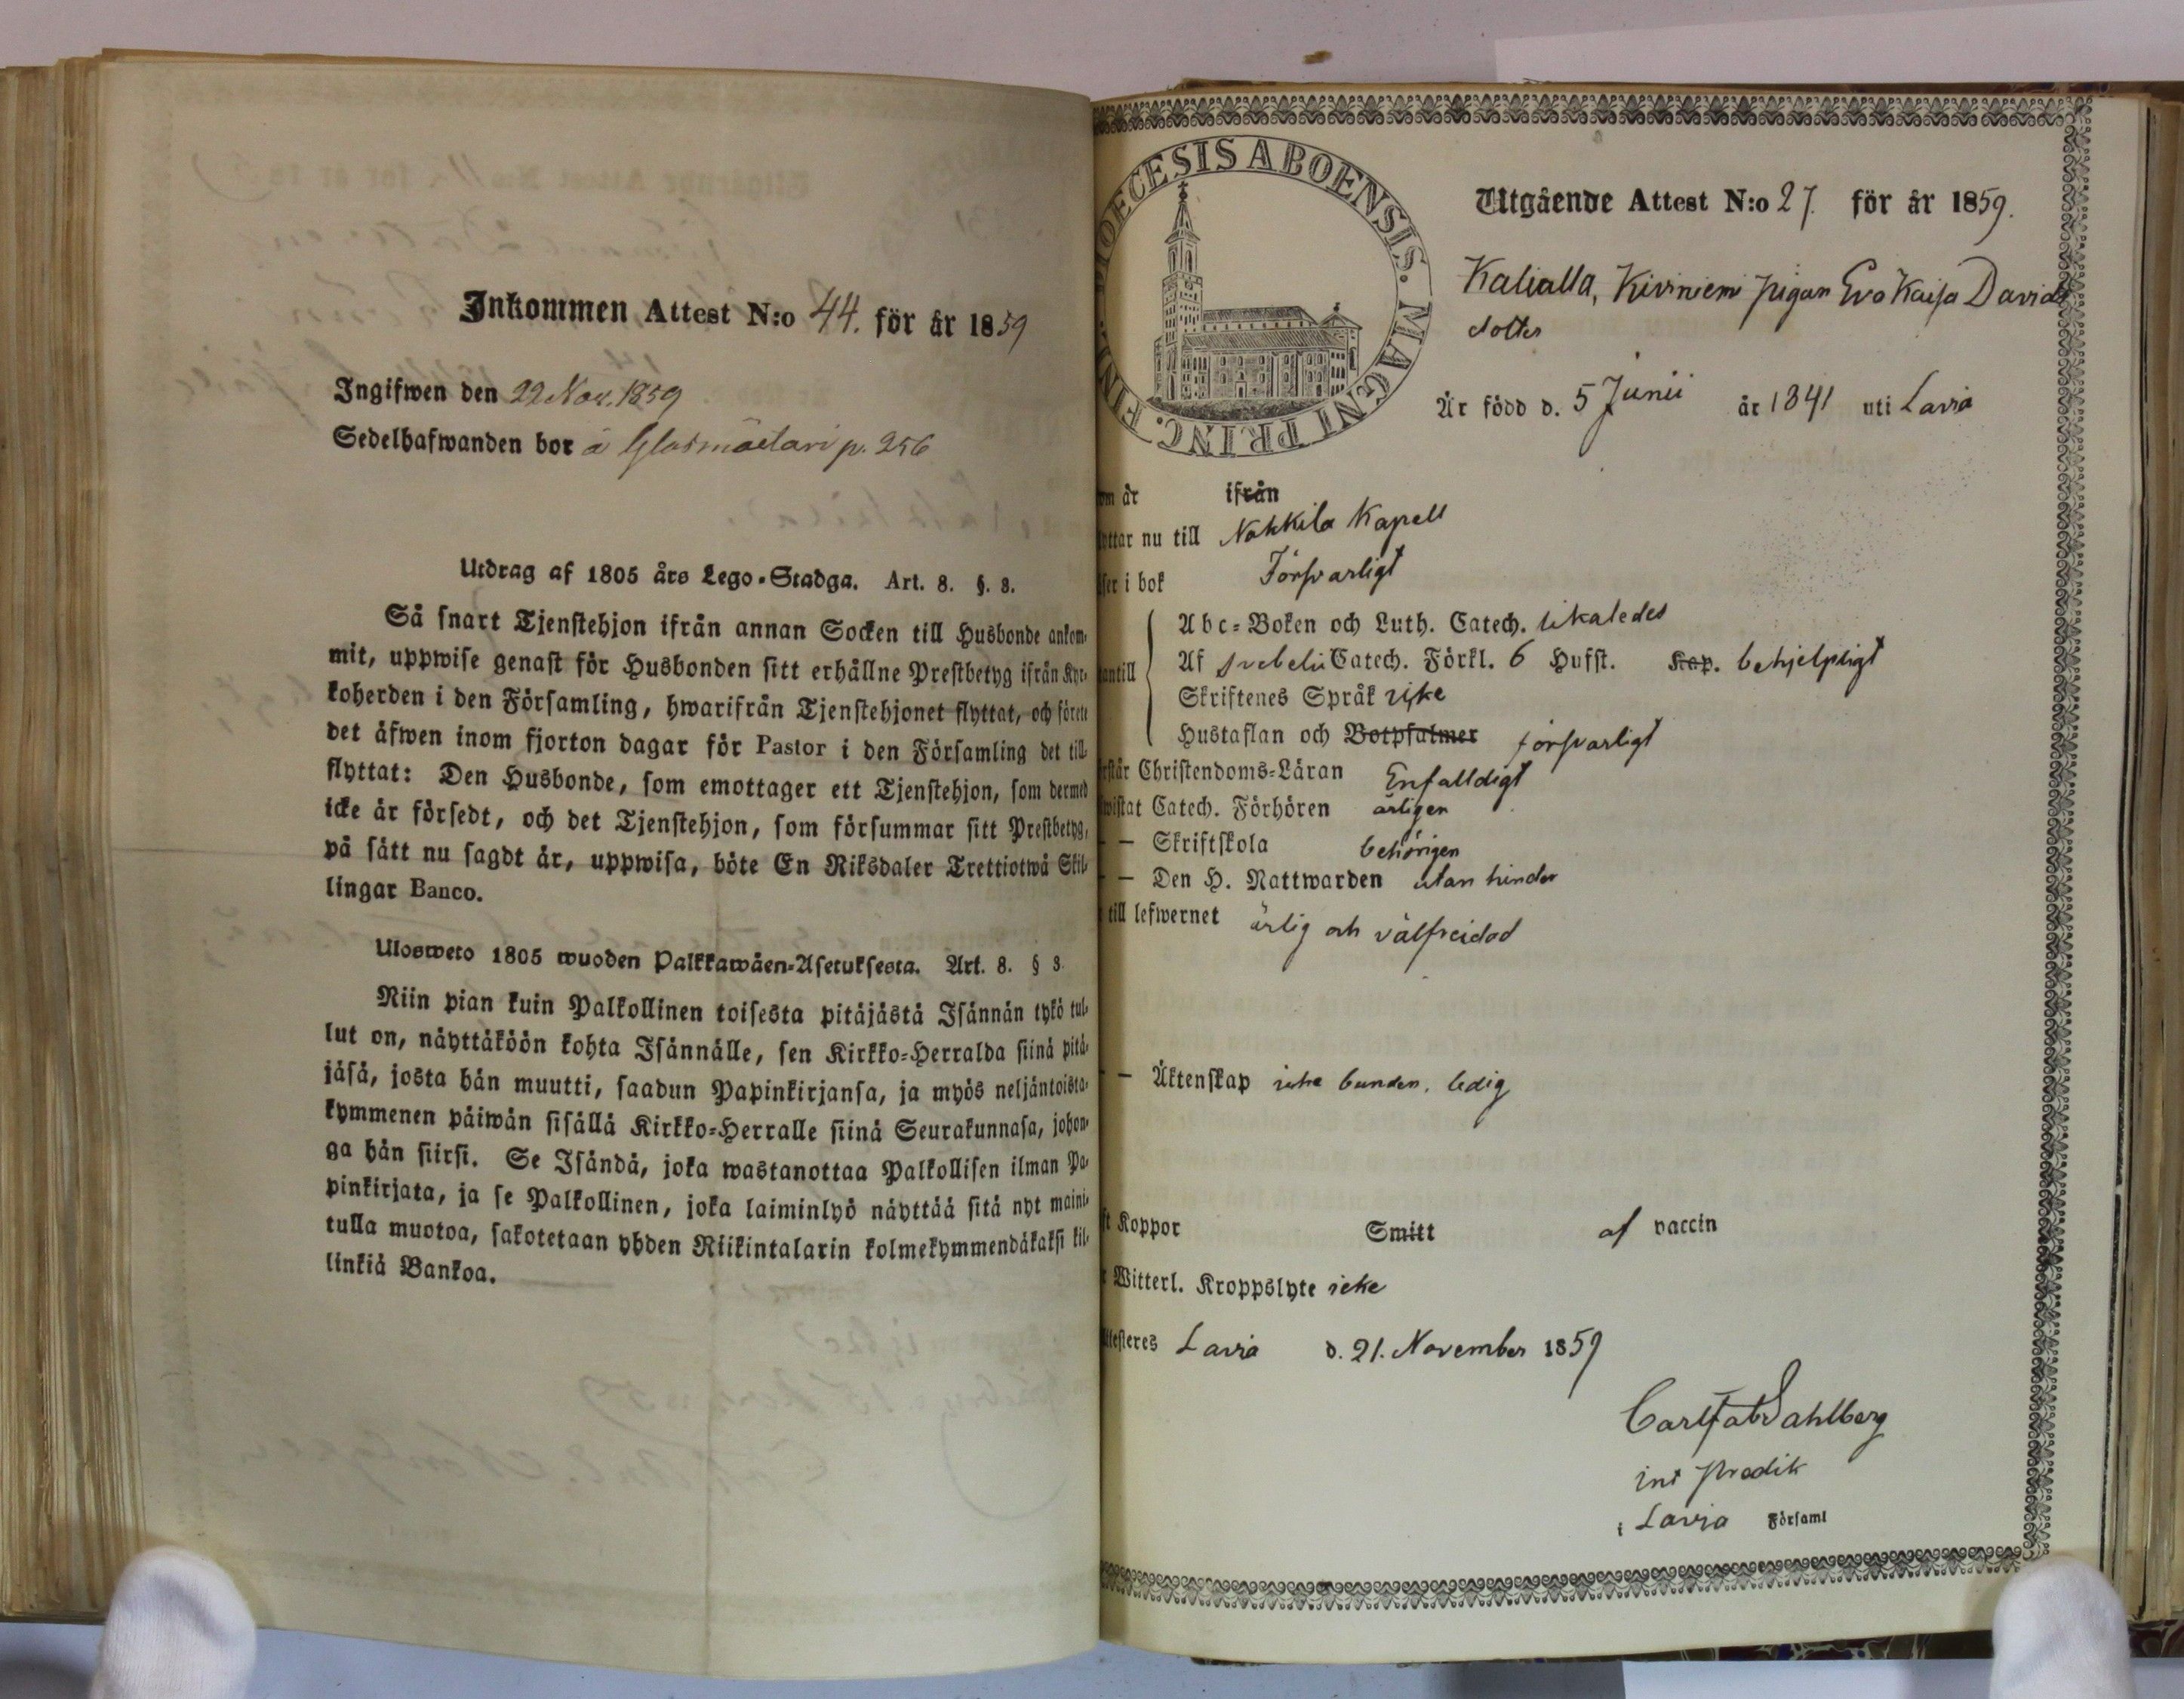 Inkommen Attest N:o 44. för år 1859
Ingifwen den 22 Nov. 1859
Sedelhafwanden bor å Glasmäetari p. 256
Utdrag af 1805 års Lego-Stadga. Art. 8. §. 3.
Så snart Tjenstehjon ifrån annan Socken till Husbonde ankom-
mit, uppwise genast för Husbonden sitt erhållne Prestbetyg ifrån Kyr-
koherden i den Församling, hwarifrån Tjenstehjonet flyttat, och förete
det äfwen inom fjorton dagar för Pastor i den Församling det till-
flyttat: Den Husbonde, som emottager ett Tjenstehjon, som dermed
icke är försedt, och det Tjenstehjon, som försummar sitt Prestbetyg,
på sätt nu sagdt är, uppwisa, böte En Riksdaler Trettiotwå Skil-
lingar Banco.
Ulosweto 1805 wuoden Palkkawäen-Asetuksesta. Art. 8. § 3.
Niin pian kuin Palkollinen toisesta pitäjästä Isännän tykö tul-
lut on, näyttäköön kohta Isännälle, sen Kirkko-Herralda siinä pitä-
jäsä, josta hän muutti, saadun Papinkirjansa, ja myös neljäntoista-
kymmenen päiwän sisällä Kirkko-Herralle siinä Seurakunnasa, johon-
ga hän siirsi. Se Isändä, joka wastanottaa Palkollisen ilman Pa-
pinkirjata, ja se Palkollinen, joka laiminlyö näyttää sitä nyt maini-
tulla muotoa, sakotetaan yhden Riikintalarin kolmekymmendäkaksi kil-
linkiä Bankoa.
DIOECESIS ABOENSIS. MAGNI PRINC. FIN
Utgående Attest N:o 27. för år 1859.
Kalialla, Kiviniemi pigan Eva Kaisa Davids
dotter
Är född d. 5 Junii år 1841 uti Lavia
om år ifrån
yttar nu till Nakkila Kapell
ser i bok Försvarligt
Abc-Boken och Luth. Catech. likaledes
Af Svebelii Catech. Förkl. 6 Hufst. Kap. behjelpligt
antill
Skriftenes Språk icke
Hustaflan och Botpsalmer försvarligt
rstår Christendoms-Läran Enfalldigt
wistat Catech. Förhören årligen
– Skriftskola behörigen
– Den H. Nattwarden utan hinder
till lefwernet ärlig och välfreidad
– Äktenskap icke bunden. ledig
ft Koppor Smitt af vaccin
Witterl. Kroppslyte icke
ttesteres Lavia d. 21. November 1859
Carl Fab Sahlberg
int Predik
i Lavia Församl